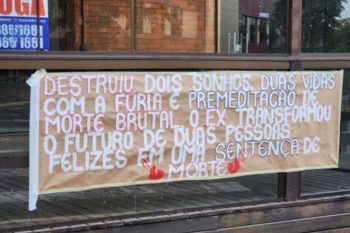 UGA
DESTRUIU DOIS SONHOS, DUAS VIDAS
COM A FÚRIA E PREMEDITAÇÃO DE
MORTE BRUTAL. O EX TRANSFORMOU
O FUTURO DE DUAS PESSOAS
FELIZES EM UMA SENTENÇA DE
MORTE